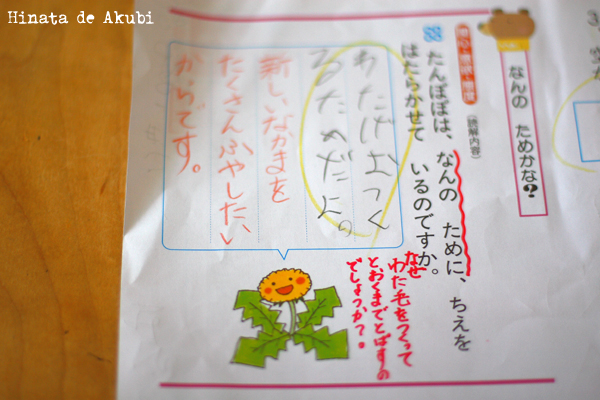 Hinata de Akubi
なんの ためかな?
関心・意欲・態度
(読解内容)
たんぽぽは、なんの ために、ちえを
はたらかせて いるのですか。
なぜ
わた毛をつくって
とおくまでとばすの
でしょうか?。
わたげおつく
るためだよ。
新しいなかまを
たくさんふやしたい
からです。